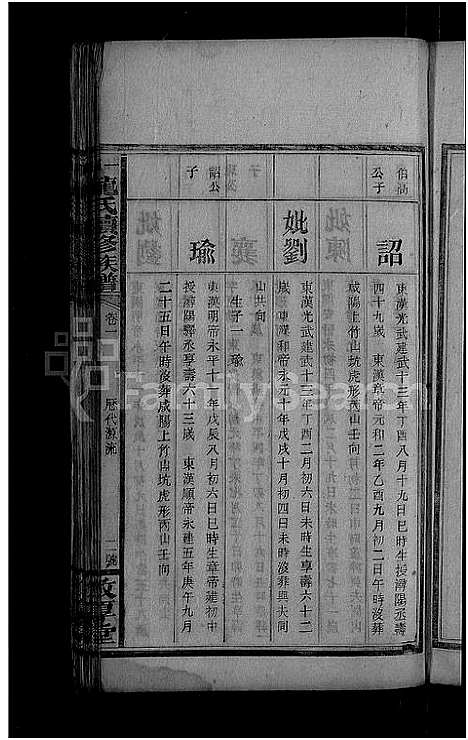 伯高
公子
詔
東漢光武建武十三年丁酉八月十九日巳時生授潯陽丞壽
四十九歲 東漢章帝元和二年乙酉九月初二日午時沒葬
咸陽上竹山坑虎形丙山壬向
妣劉
東漢光武建武十三年丁酉二月初六日未時生享壽六十二
歲 東漢和帝永元十年戊戌十月初四日未時沒葬與夫同
山共向
生子一 瑜
詔公
子
瑜
東漢明帝永平十一年戊辰八月初六日巳時生章帝建初中
授潯陽驛丞享壽六十三歲 東漢順帝永建五年庚午九月
二十五日午時沒葬咸陽上竹山坑虎形丙山壬向
氏續修族譜
卷
歷代源流
二
號
敦
堂
FamilySearch